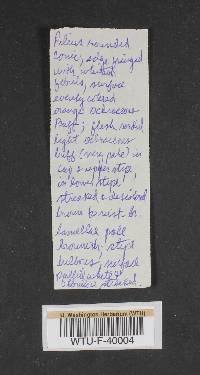 Pileus rounded
conic, edge fringed
with whitish
fibrils, surface
evenly colored
orange ochraceous
Buff; flesh
light ochraceous
buff (very pale) in
cap & upper stipe
in lower stipe
streaked & discolored
brown
lamellae pale
brownish. stipe
bulbous, surface
pallid white &
streaked.
U. Washington Herbarium (WTU)
WTU-F-40004